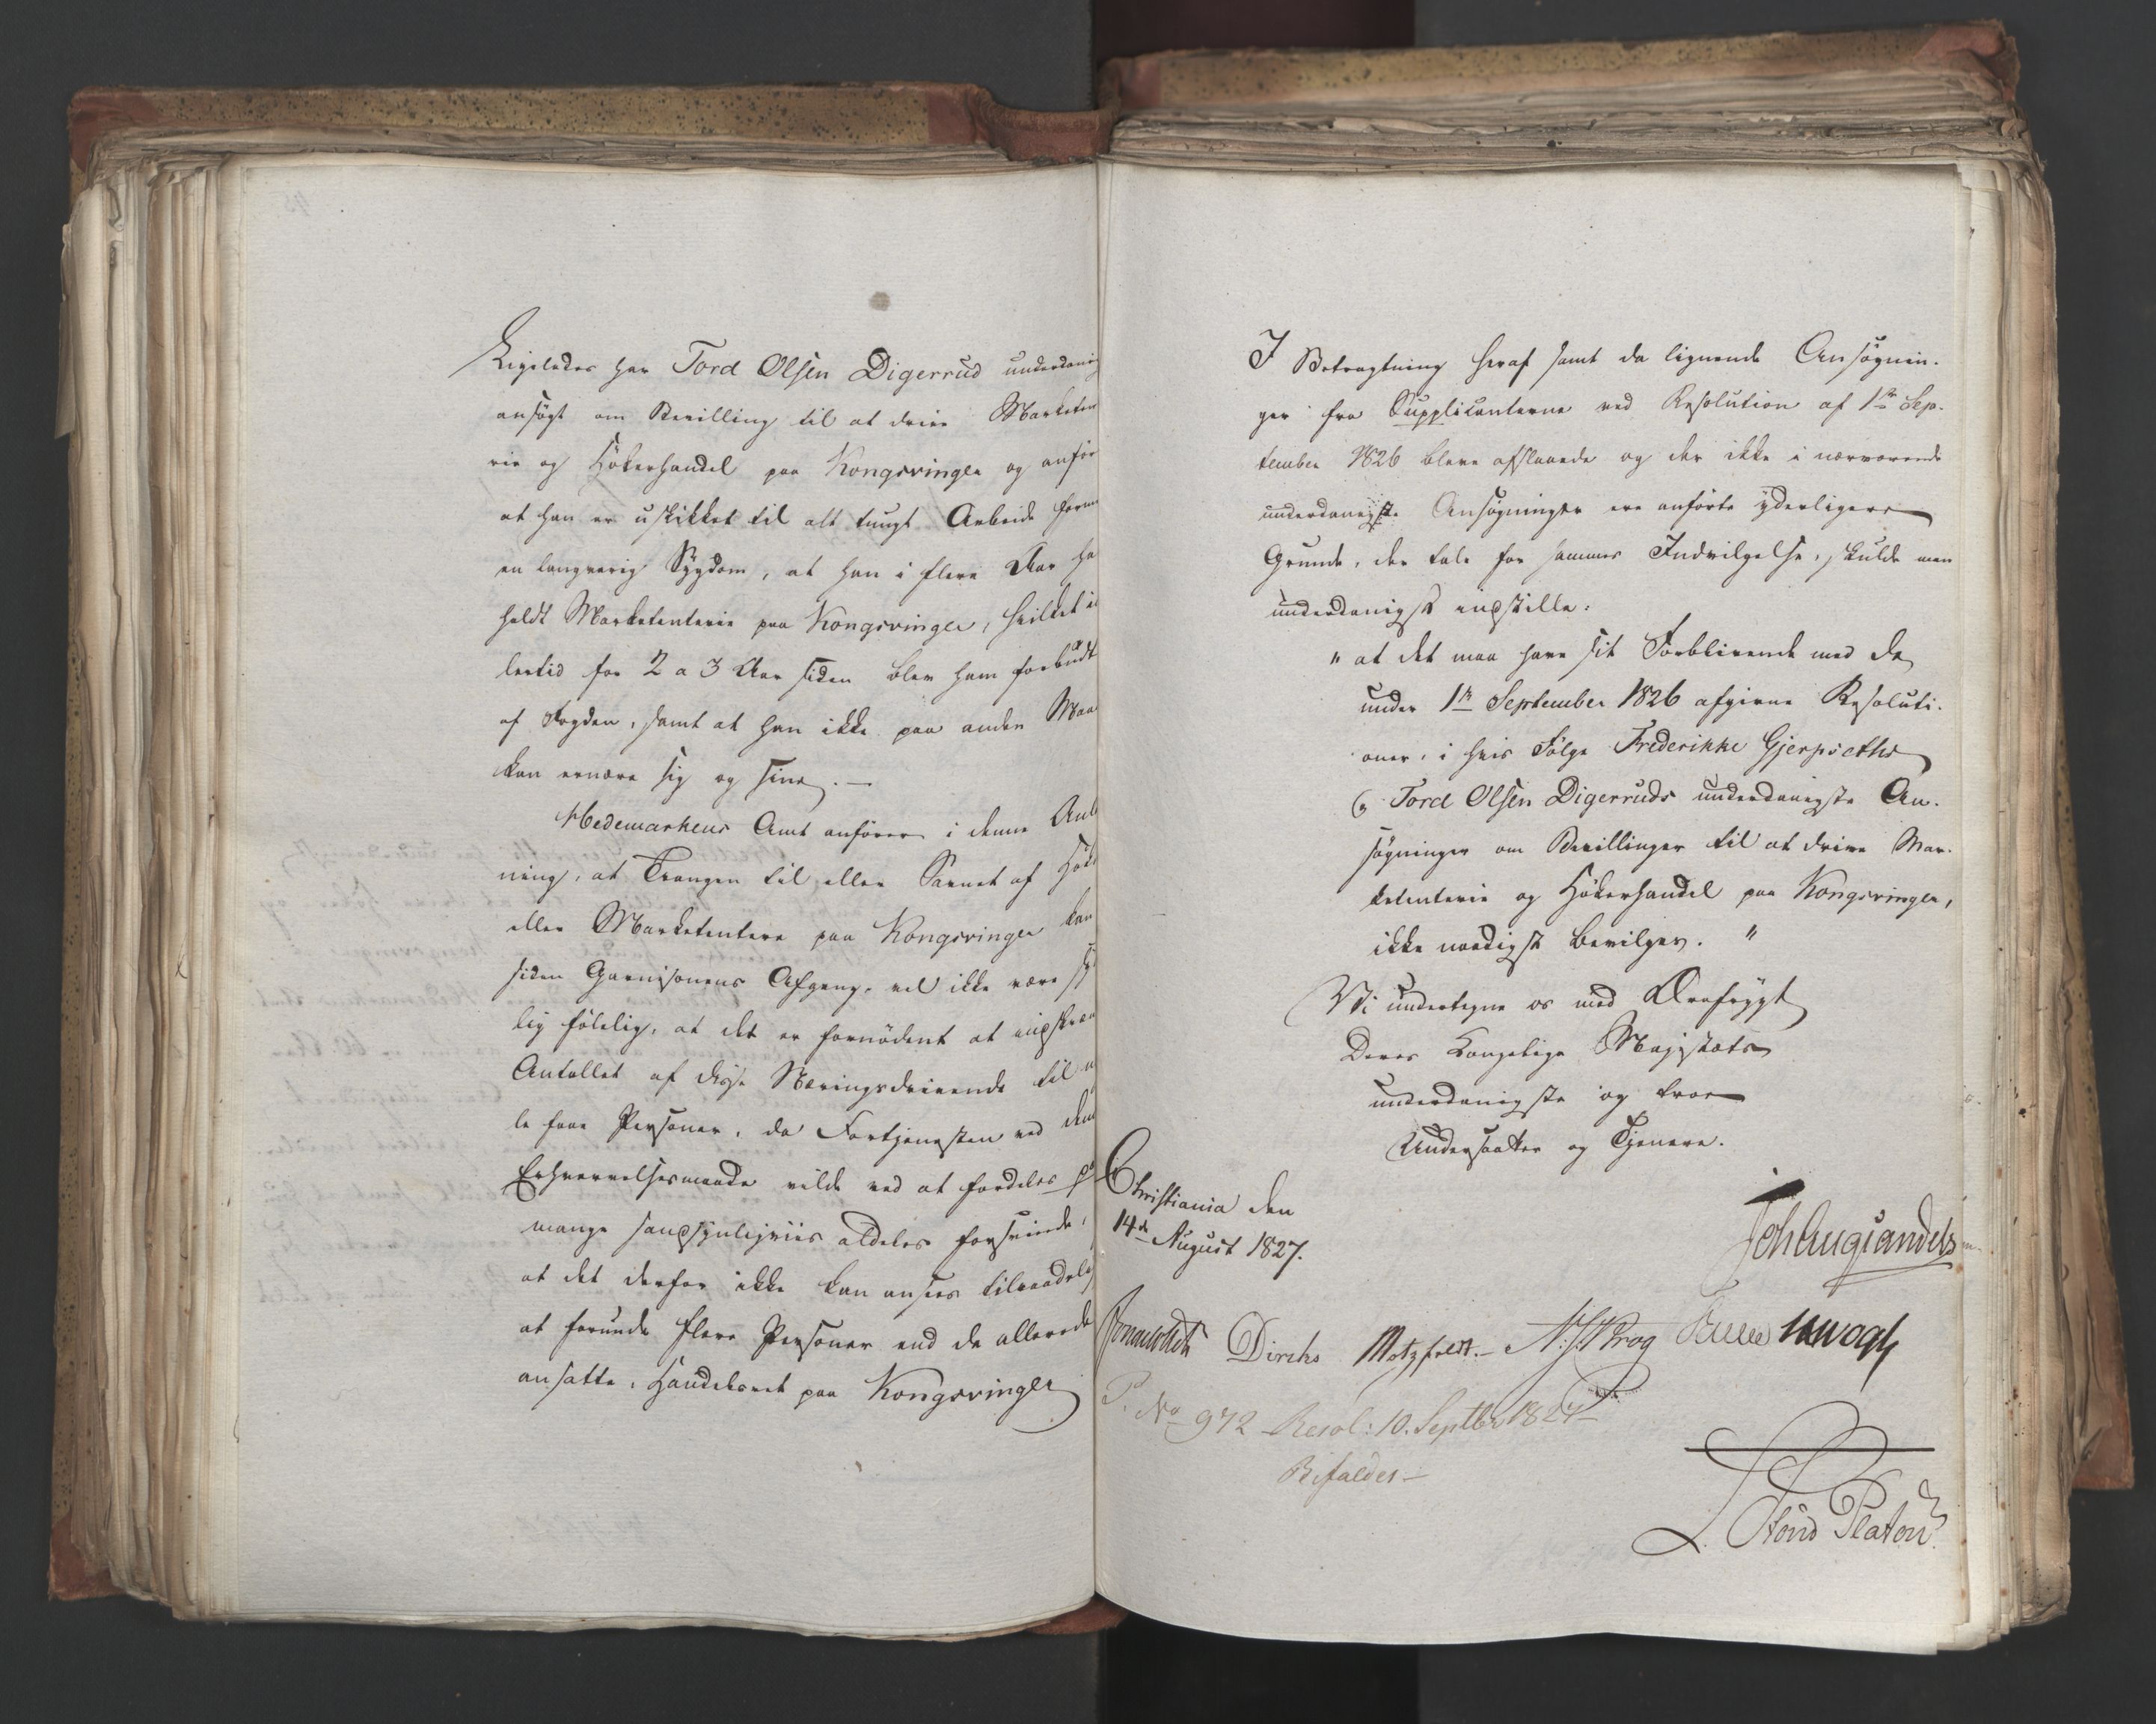 Ligeledes har Tord Olsen Digerrud underdanig
ansøgt om Bevilling til at drive Marketen
rie og Høkerhandel paa Kongsvinger og anfør
at han er uskikket til alt tungt Arbeide formed
en langvarig Sygdom, at han i flere Aar ha
holdt Marketenterie paa Kongsvinger, hvilket i
lertid for 2 a 3 Aar siden blev ham forbudt
af Fogden, samt at han ikke paa anden Maa
kan ernære sig og sine. —
Hedemarkens Amt anfører i denne Anl
ning, at Trangen til eller Savnet af Høk
eller Marketentere paa Kongsvinger kan
siden Garnisonens Afgang, vel ikke være sy
lig følelig, at det er fornødent at indskræn
Antallet af disse Næringsdrivende til
le faae Personer, da Fortjenesten ved den
Erhvervelsesmaade vilde ved at fordeles p
mange sandsynligviis aldeles forsvinde,
at det derfor ikke kan ansees tilraadeli
at forunde flere Personer end de allerede
ansatte, Handelsret paa Kongsvinger
I Betragtning heraf samt da lignende Ansøgnin-
ger fra Supplicanterne ved Resolution af 1ste Sep-
tember 1826 bleve afslaaede og der ikke i nærværende
underdanigste Ansøgninger ere anførte yderligere
Grunde, der tale for sammes Indvilgelse, skulde man
underdanigst indstille:
" at det maa have sit Forblivende med de
under 1ste September 1826 afgivne Resoluti-
oner, i hvis Følge Frederikke Gjerpseths
og Tord Olsen Digerruds underdanigste An-
søgninger om Bevillinger til at drive Mar-
ketenterie og Høkerhandel paa Kongsvinger,
ikke naadigst bevilges. "
Vi undertegne os med Ærefrygt
Deres Kongelige Majestæts
underdanigste og troe
Undersaatter og Tjenere.
Christiania den
14de August 1827.
Joh Aug Sandels
Diriks Motzfeldt. — Krog
No 972 Resol: 10. Septbr 1827
Bifaldes —
L. Stoud Platou